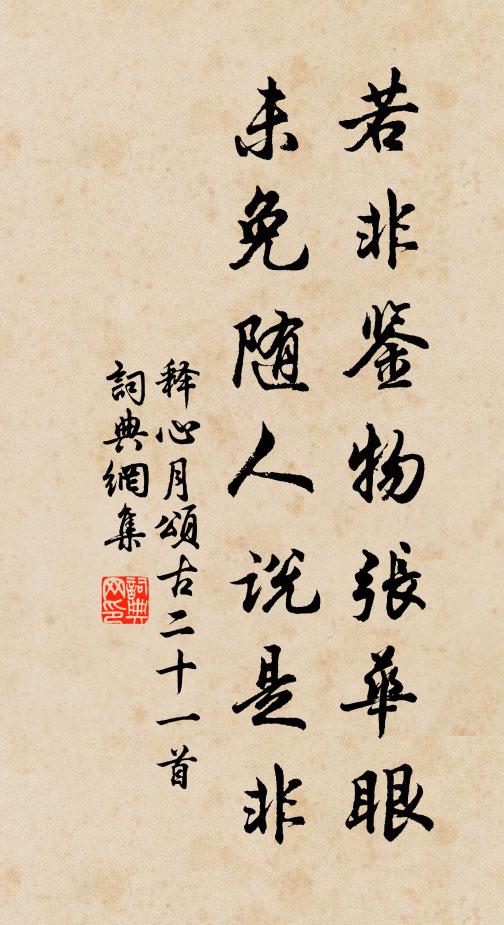 若非鉴物張華眼
未免随人说是非
释心月頌古二十一首
詞典網集
詞典网印